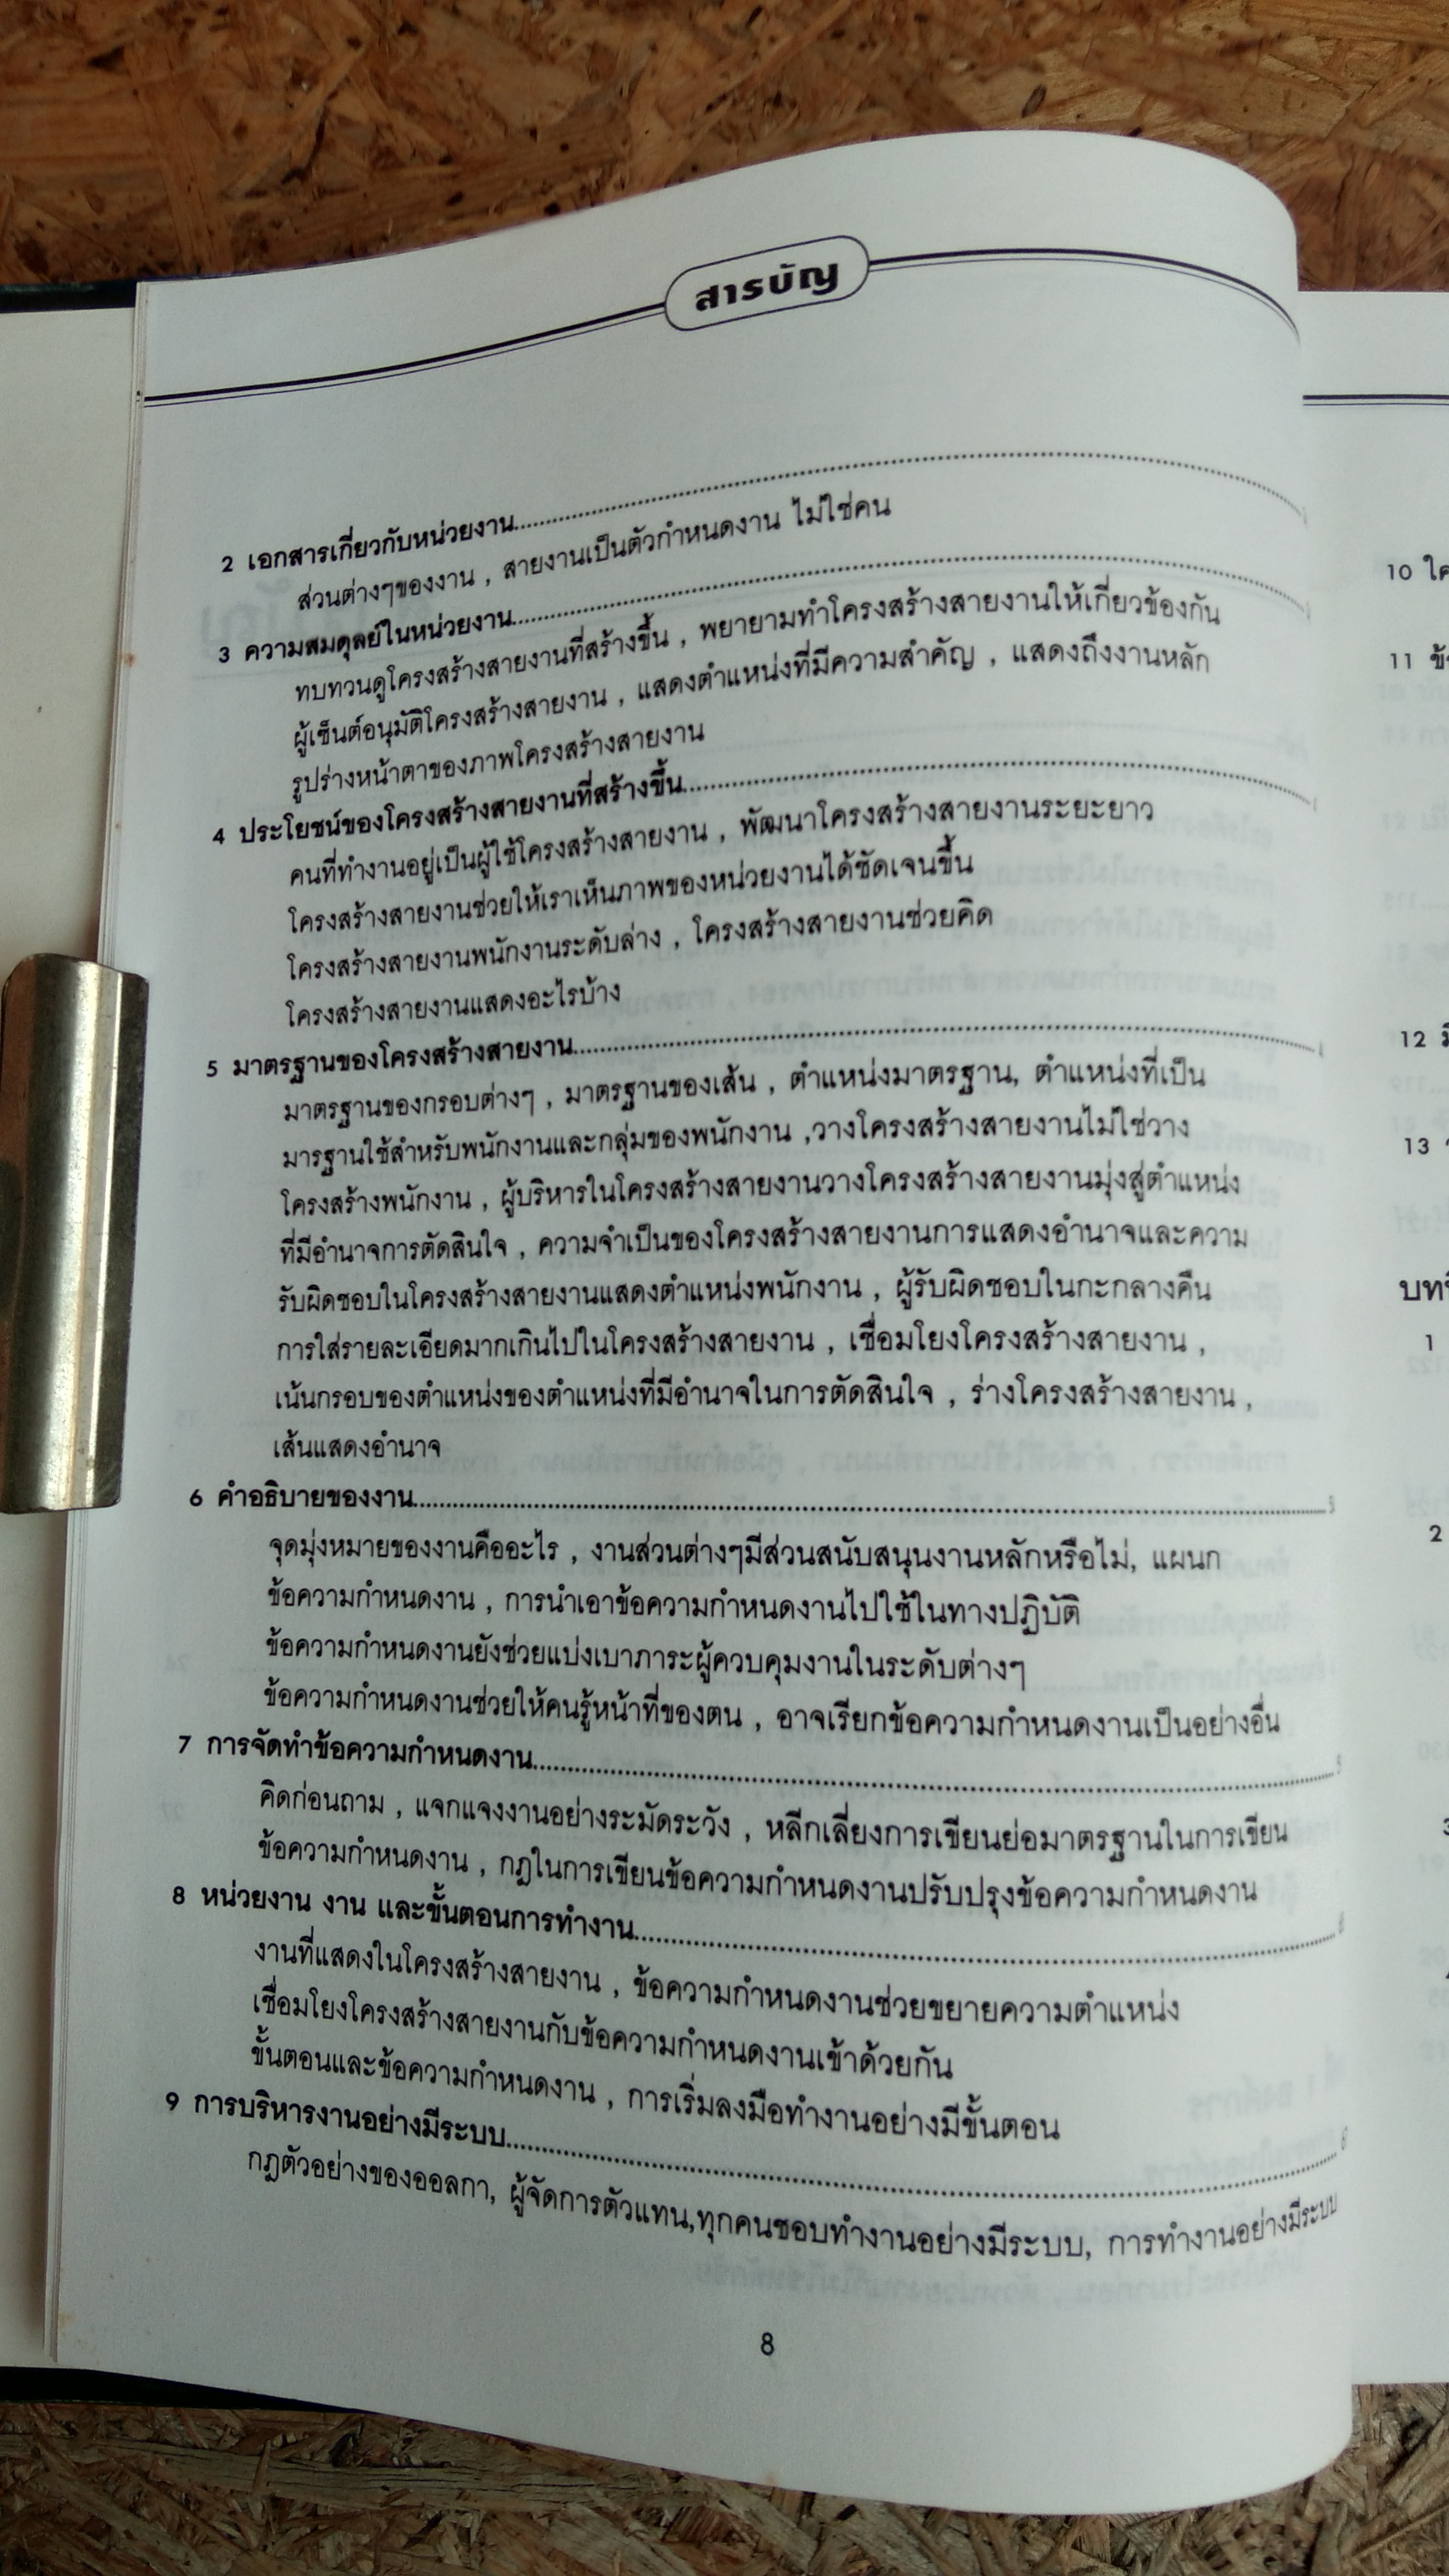 สารบัญ
2 เอกสารเกี่ยวกับหน่วยงาน
ส่วนต่างๆของงาน , สายงานเป็นตัวกำหนดงาน ไม่ใช่คน
3 ความสมดุลย์ในหน่วยงาน
ทบทวนดูโครงสร้างสายงานที่สร้างขึ้น , พยายามทำโครงสร้างสายงานให้เกี่ยวข้องกัน
ผู้เซ็นต์อนุมัติโครงสร้างสายงาน , แสดงตำแหน่งที่มีความสำคัญ , แสดงถึงงานหลัก
รูปร่างหน้าตาของภาพโครงสร้างสายงาน
4 ประโยชน์ของโครงสร้างสายงานที่สร้างขึ้น
คนที่ทำงานอยู่เป็นผู้ใช้โครงสร้างสายงาน , พัฒนาโครงสร้างสายงานระยะยาว
โครงสร้างสายงานช่วยให้เราเห็นภาพของหน่วยงานได้ชัดเจนขึ้น
โครงสร้างสายงานพนักงานระดับล่าง , โครงสร้างสายงานช่วยคิด
โครงสร้างสายงานแสดงอะไรบ้าง
5 มาตรฐานของโครงสร้างสายงาน
มาตรฐานของกรอบต่างๆ , มาตรฐานของเส้น , ตำแหน่งมาตรฐาน, ตำแหน่งที่เป็น
มารฐานใช้สำหรับพนักงานและกลุ่มของพนักงาน ,วางโครงสร้างสายงานไม่ใช่วาง
โครงสร้างพนักงาน , ผู้บริหารในโครงสร้างสายงานวางโครงสร้างสายงานมุ่งสู่ตำแหน่ง
ที่มีอำนาจการตัดสินใจ , ความจำเป็นของโครงสร้างสายงานการแสดงอำนาจและความ
รับผิดชอบในโครงสร้างสายงานแสดงตำแหน่งพนักงาน , ผู้รับผิดชอบในกะกลางคืน
การใส่รายละเอียดมากเกินไปในโครงสร้างสายงาน , เชื่อมโยงโครงสร้างสายงาน ,
เน้นกรอบของตำแหน่งของตำแหน่งที่มีอำนาจในการตัดสินใจ , ร่างโครงสร้างสายงาน ,
เส้นแสดงอำนาจ
6 คำอธิบายของงาน
จุดมุ่งหมายของงานคืออะไร , งานส่วนต่างๆมีส่วนสนับสนุนงานหลักหรือไม่, แผนก
ข้อความกำหนดงาน , การนำเอาข้อความกำหนดงานไปใช้ในทางปฏิบัติ
ข้อความกำหนดงานยังช่วยแบ่งเบาภาระผู้ควบคุมงานในระดับต่างๆ
ข้อความกำหนดงานช่วยให้คนรู้หน้าที่ของตน , อาจเรียกข้อความกำหนดงานเป็นอย่างอื่น
7 การจัดทำข้อความกำหนดงาน
คิดก่อนถาม , แจกแจงงานอย่างระมัดระวัง , หลีกเลี่ยงการเขียนย่อมาตรฐานในการเขียน
ข้อความกำหนดงาน , กฎในการเขียนข้อความกำหนดงานปรับปรุงข้อความกำหนดงาน
8 หน่วยงาน งาน และขั้นตอนการทำงาน
งานที่แสดงในโครงสร้างสายงาน , ข้อความกำหนดงานช่วยขยายความตำแหน่ง
เชื่อมโยงโครงสร้างสายงานกับข้อความกำหนดงานเข้าด้วยกัน
ขั้นตอนและข้อความกำหนดงาน , การเริ่มลงมือทำงานอย่างมีขั้นตอน
9 การบริหารงานอย่างมีระบบ
กฎตัวอย่างของออลกา, ผู้จัดการตัวแทน,ทุกคนชอบทำงานอย่างมีระบบ, การทำงานอย่างมีระบบ
8
10
11
12
13
1
2